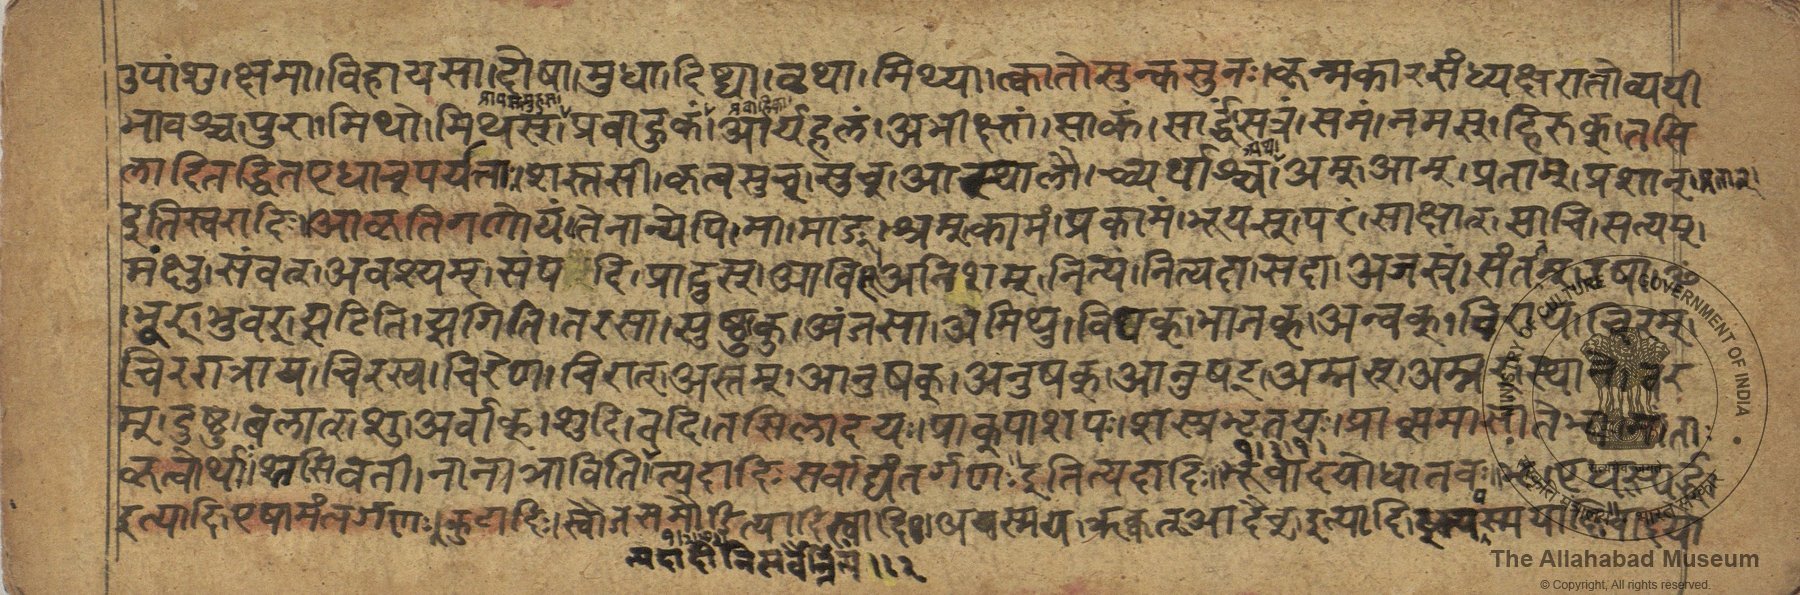 उपांशु।क्षमा।विहायसा।दोषा।मुधा।दिष्ट्या।वृथा।मिथ्या।त्कातोसुन्कसुनः।कृन्मकारसंध्यक्षरांतोव्ययी
भावश्च।पुरा।मिथो।मिथस्।प्रवाहुकं।आर्यहलं।अभीक्ष्णं।साकं।सार्द्धं।सत्रं।समं।नमस्।हिरुक्।तसि
लादितद्धितएधाच्पर्यंताः।शस्तसी।कृत्वसुच्।सुच्।आस्थालौ।च्व्यर्थाश्च।अम्।आम्।प्रताम्।प्रशान्।
इतिस्वरादिः।आकृतिगणोयं।तेनान्येपि।मा।माङ्।श्रम्।कामं।प्रकामं।भूयस्।परं।साक्षात्।साचि।सत्यम्।
मंक्षु।संवत्।अवश्यम्।सप दि।प्रादुस्।आविस्।अनिशम्।नित्यं।नित्यदा।सदा।अजस्रं।संततम्।उषा।ॐ
।भूर्।भुवर्।झटिति।झगिति।तरसा।सुष्ठु।कु।अंजसा।अमिथु।विथक्।भाजक्।अन्वक्।चिराय।चिरम्।
चिररात्राय।चिरस्य।चिरेण।चिरात्।अस्तम्।आनुषक्।अनुषक्।आनुषट्।अम्नस्।अम्नर्।स्थाने।वर
म्।दुष्ठु।बलात्।शु।अर्वाक्।शुदि।वदि।तसिलादयः।प्राक्पाशपः।शस्प्रभृतयः।प्राक्समासांतेभ्यः।मांताः
कृत्वोर्थाः।तसिवती।नानाञाविति।त्यदादिः सर्वाद्यंतर्गणः इतित्यदादिः।भूवादयोधातवः।
इत्यादि।एषामंतर्गणः।कुटादिः।स्वौजसमौडित्यादिस्वादिः।
त्यदादीनिसर्वैर्नित्यं।।१२
The Allahabad Museum
© Copyright, All rights reserved.
MINISTRY OF CULTURE GOVERNMENT OF INDIA
सत्यमेव जयते
संस्कृति मंत्रालय भारत सरकार